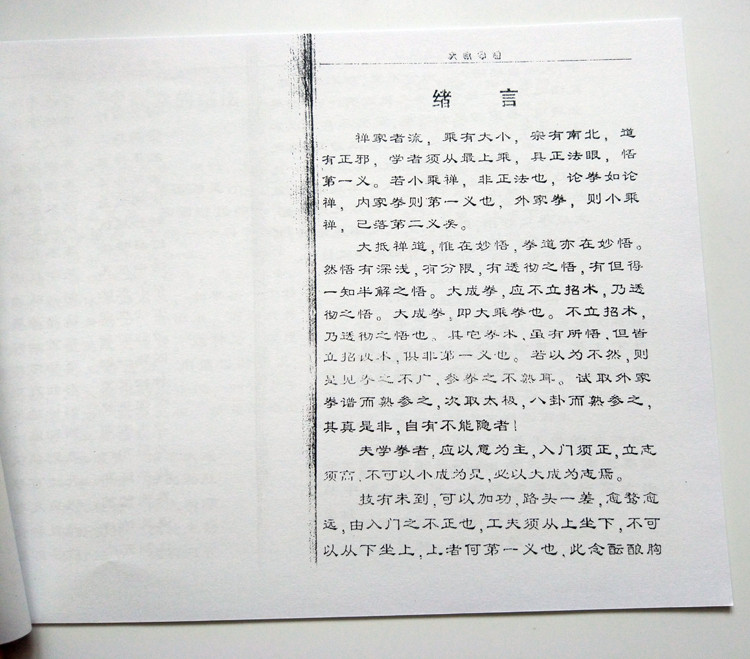 大成拳道
绪 言
禅家者流，乘有大小，宗有南北，道
有正邪，学者须从最上乘，具正法眼，悟
第一义。若小乘禅，非正法也，论拳如论
禅，内家拳则第一义也，外家拳，则小乘
禅，已落第二义矣。
大抵禅道，惟在妙悟，拳道亦在妙悟。
然悟有深浅，有分限，有透彻之悟，有但得
一知半解之悟。大成拳，应不立招术，乃透
彻之悟。大成拳，即大乘拳也。不立招术，
乃透彻之悟也。其它拳术，虽有所悟，但皆
立招设术，俱非第一义也。若以为不然，则
是见拳之不广，参拳之不熟耳。试取外家
拳谱而熟参之，次取太极，八卦而熟参之，
其真是非，自有不能隐者！
夫学拳者，应以意为主，入门须正，立志
须高，不可以小成为足，必以大成为志焉。
技有未到，可以加功，路头一差，愈骛愈
远，由入门之不正也，工夫须从上坐下，不可
以从下坐上，上者何第一义也，此念酝酿胸